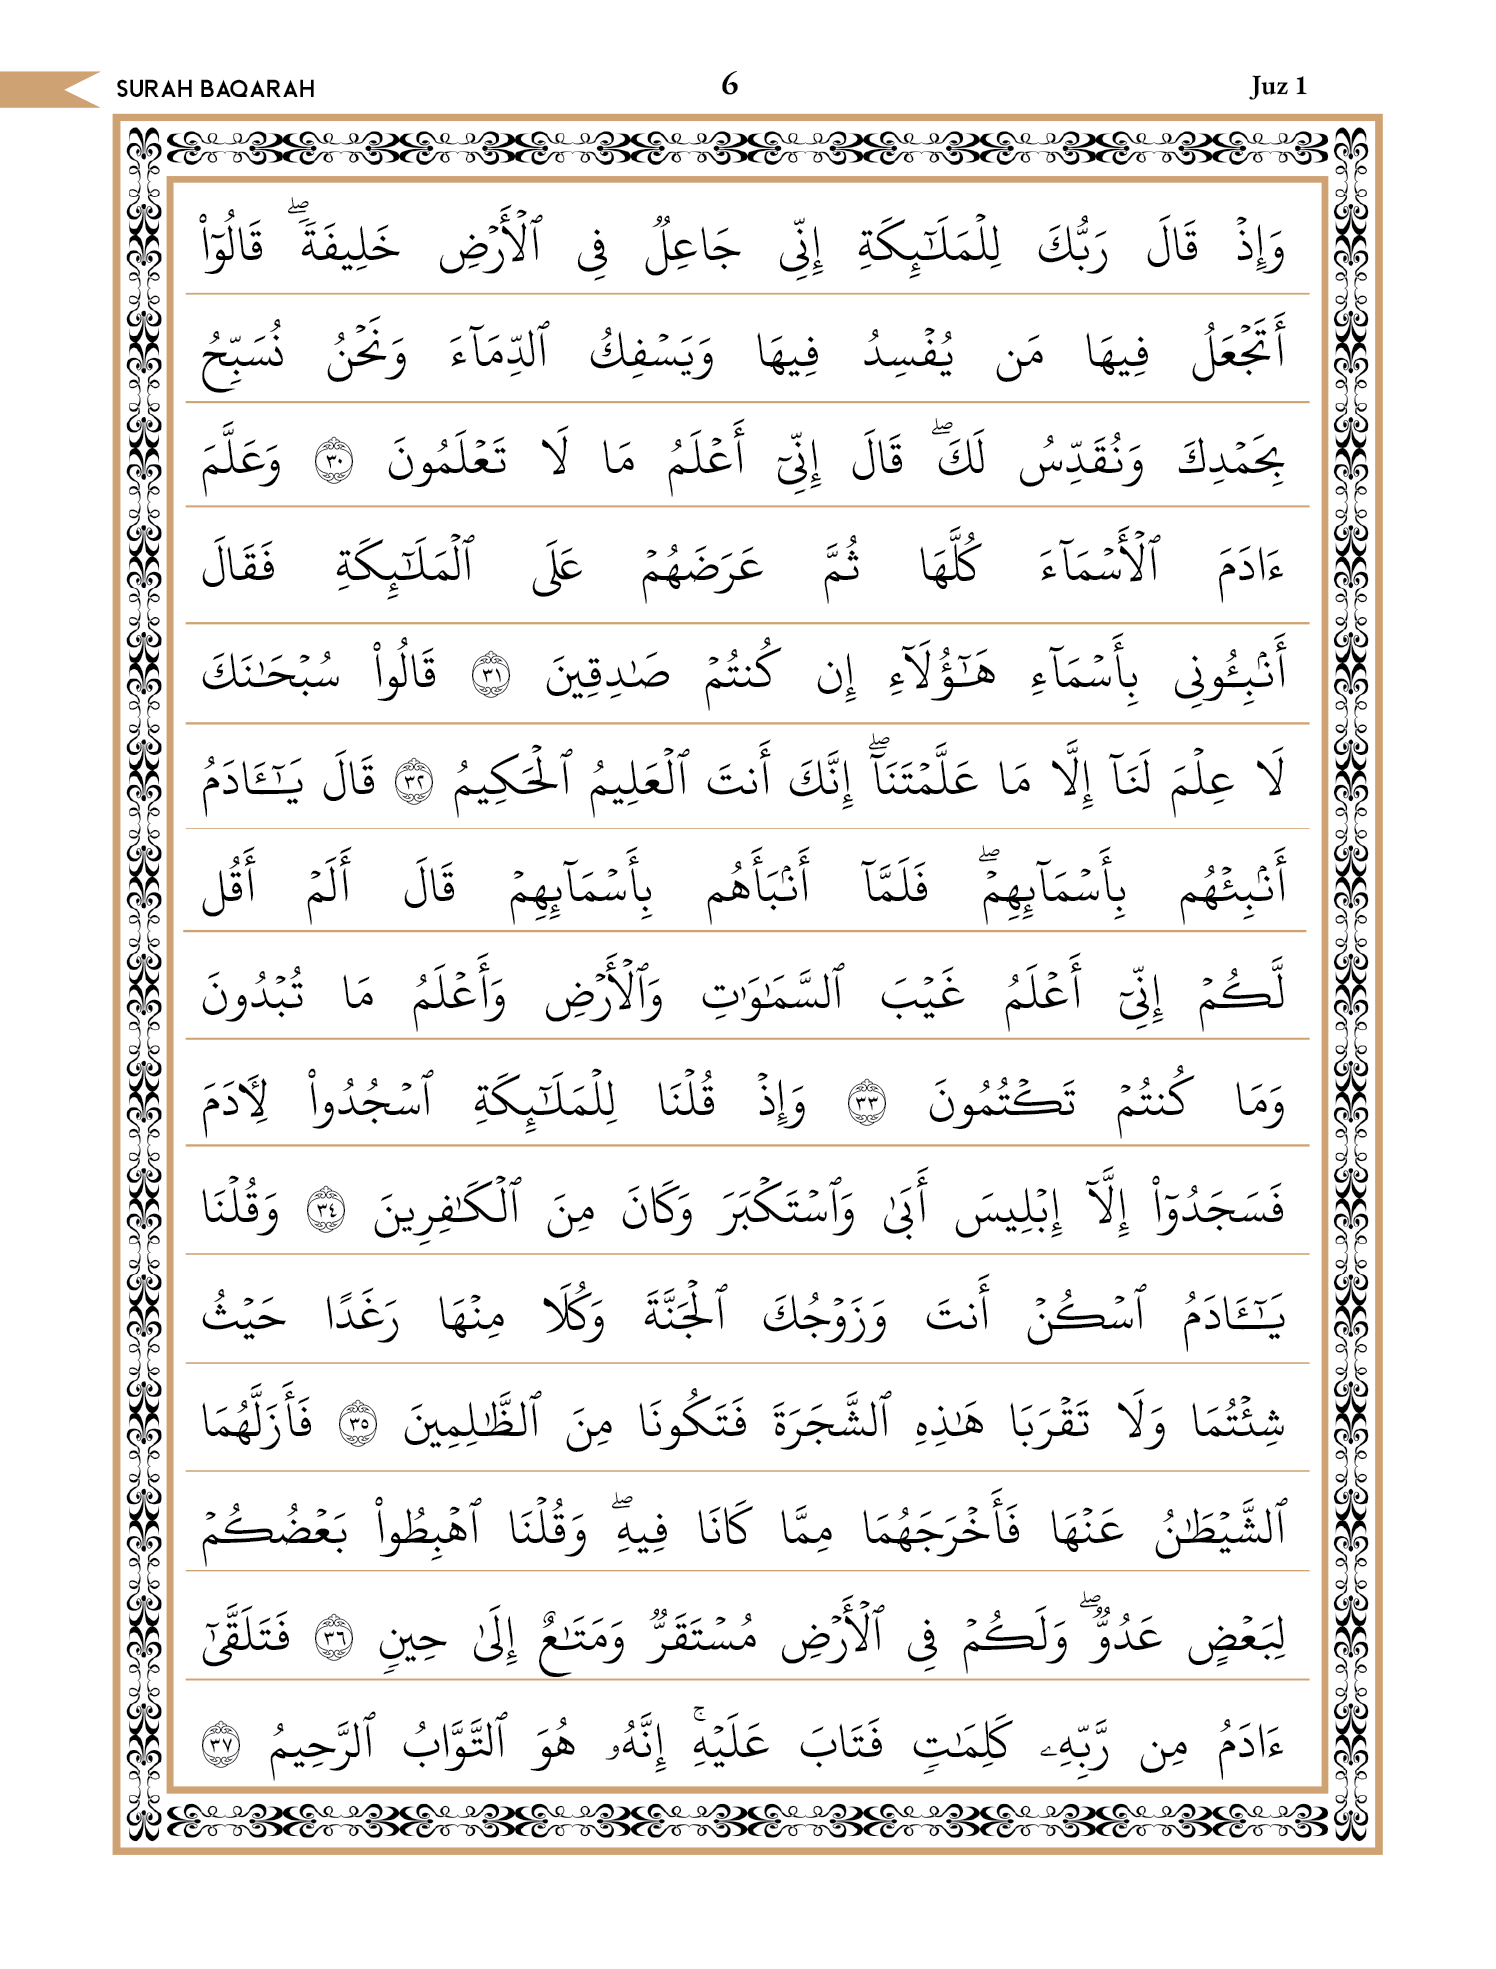 SURAH BAQARAH 6 Juz 1
وَإِذْ قَالَ رَبُّكَ لِلْمَلَـٰٓئِكَةِ إِنِّى جَاعِلٌ فِى ٱلْأَرْضِ خَلِيفَةً ۖ قَالُوٓا۟
أَتَجْعَلُ فِيهَا مَن يُفْسِدُ فِيهَا وَيَسْفِكُ ٱلدِّمَآءَ وَنَحْنُ نُسَبِّحُ
بِحَمْدِكَ وَنُقَدِّسُ لَكَ ۖ قَالَ إِنِّىٓ أَعْلَمُ مَا لَا تَعْلَمُونَ ٣٠ وَعَلَّمَ
ءَادَمَ ٱلْأَسْمَآءَ كُلَّهَا ثُمَّ عَرَضَهُمْ عَلَى ٱلْمَلَـٰٓئِكَةِ فَقَالَ
أَنۢبِـُٔونِى بِأَسْمَآءِ هَـٰٓؤُلَآءِ إِن كُنتُمْ صَـٰدِقِينَ ٣١ قَالُوا۟ سُبْحَـٰنَكَ
لَا عِلْمَ لَنَآ إِلَّا مَا عَلَّمْتَنَآ ۖ إِنَّكَ أَنتَ ٱلْعَلِيمُ ٱلْحَكِيمُ ٣٢ قَالَ يَـٰٓـَٔادَمُ
أَنۢبِئْهُم بِأَسْمَآئِهِمْ ۖ فَلَمَّآ أَنۢبَأَهُم بِأَسْمَآئِهِمْ قَالَ أَلَمْ أَقُل
لَّكُمْ إِنِّىٓ أَعْلَمُ غَيْبَ ٱلسَّمَـٰوَٰتِ وَٱلْأَرْضِ وَأَعْلَمُ مَا تُبْدُونَ
وَمَا كُنتُمْ تَكْتُمُونَ ٣٣ وَإِذْ قُلْنَا لِلْمَلَـٰٓئِكَةِ ٱسْجُدُوا۟ لِـَٔادَمَ
فَسَجَدُوٓا۟ إِلَّآ إِبْلِيسَ أَبَىٰ وَٱسْتَكْبَرَ وَكَانَ مِنَ ٱلْكَـٰفِرِينَ ٣٤ وَقُلْنَا
يَـٰٓـَٔادَمُ ٱسْكُنْ أَنتَ وَزَوْجُكَ ٱلْجَنَّةَ وَكُلَا مِنْهَا رَغَدًا حَيْثُ
شِئْتُمَا وَلَا تَقْرَبَا هَـٰذِهِ ٱلشَّجَرَةَ فَتَكُونَا مِنَ ٱلظَّـٰلِمِينَ ٣٥ فَأَزَلَّهُمَا
ٱلشَّيْطَـٰنُ عَنْهَا فَأَخْرَجَهُمَا مِمَّا كَانَا فِيهِ ۖ وَقُلْنَا ٱهْبِطُوا۟ بَعْضُكُمْ
لِبَعْضٍ عَدُوٌّ ۖ وَلَكُمْ فِى ٱلْأَرْضِ مُسْتَقَرٌّ وَمَتَـٰعٌ إِلَىٰ حِينٍ ٣٦ فَتَلَقَّىٰٓ
ءَادَمُ مِن رَّبِّهِۦ كَلِمَـٰتٍ فَتَابَ عَلَيْهِ ۚ إِنَّهُۥ هُوَ ٱلتَّوَّابُ ٱلرَّحِيمُ ٣٧